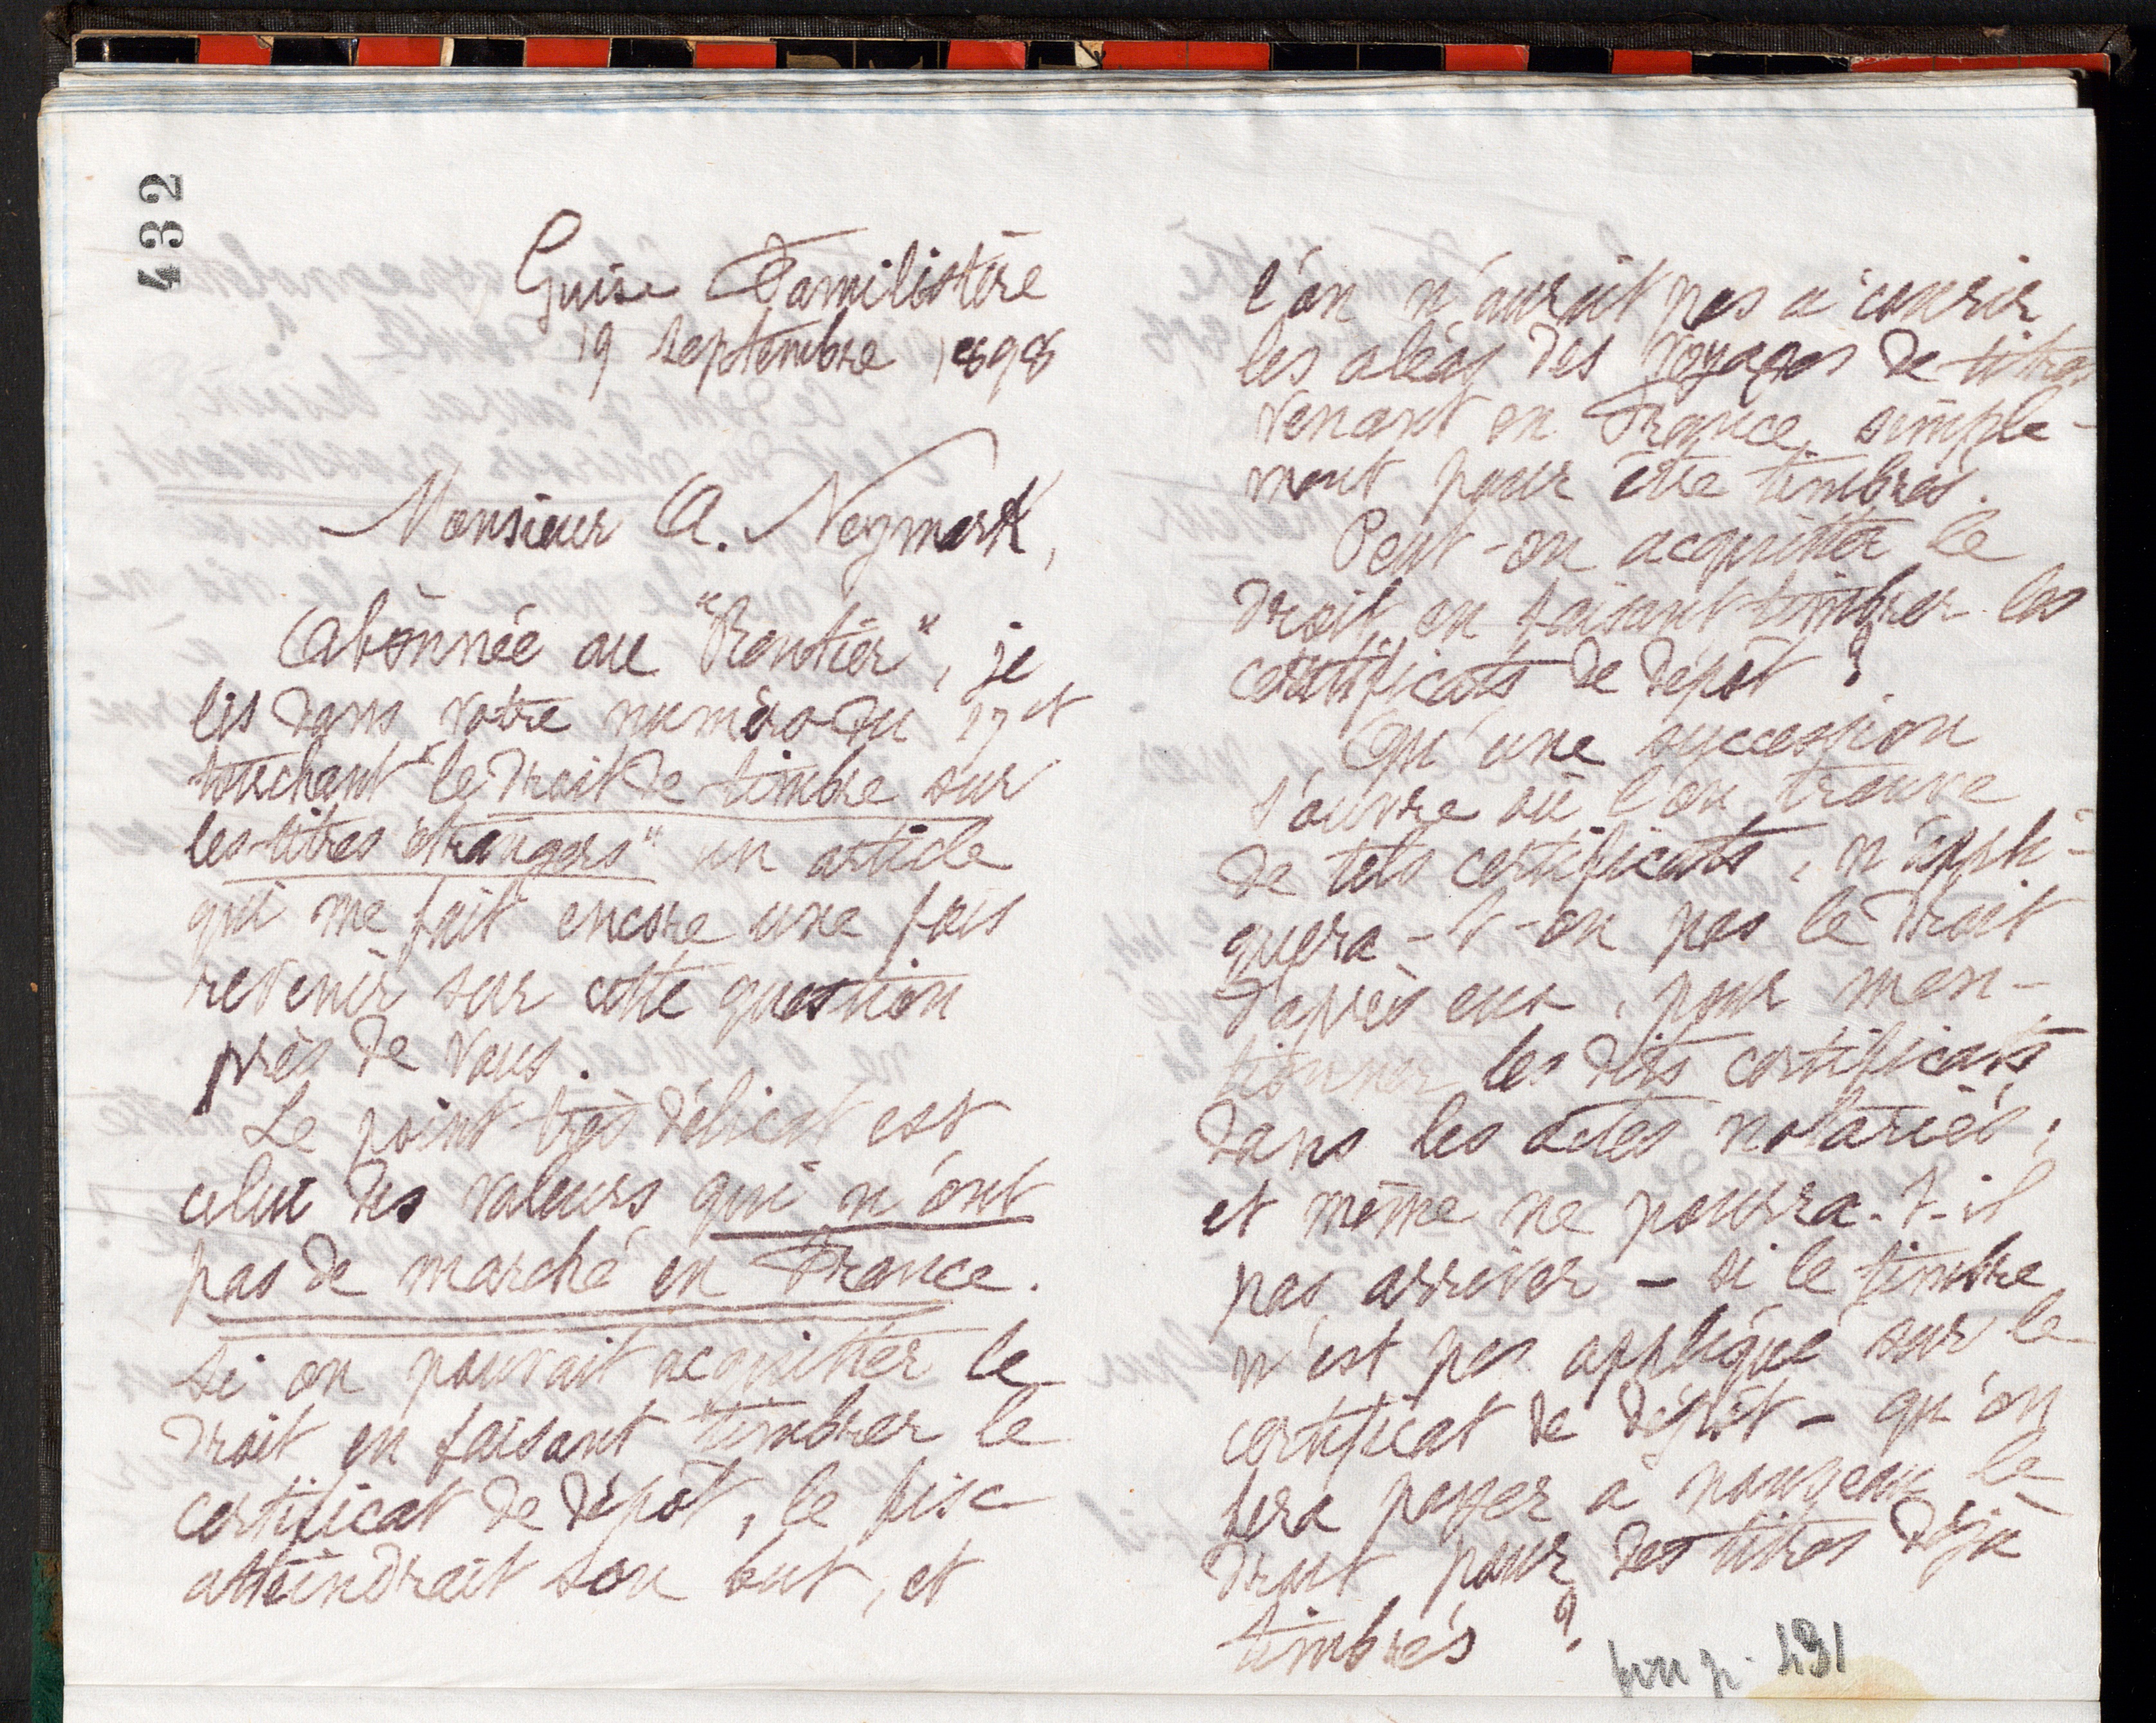 432
Guise Familistère
19 septembre 1898
Monsieur A. Neymark,
Abonnée au "Rentier", je
lis dans votre numéro du 17 ct
touchant "le droit de timbre sur
les titres étrangers" un article
qui me fait encore une fois
revenir sur cette question
près de vous.
Le point très délicat est
celui des valeurs qui n'ont
pas de marché en France.
Si on pouvait acquitter le
droit en faisant timbrer le
certificat de dépôt, le fisc
atteindrait son but, et
l'on n'aurait pas à courir
les aléas des voyages de titres
venant en France, simple-
ment pour être timbrés.
Peut-on acquitter le
droit en faisant timbrer les
certificats de dépôt ?
Qu'une succession
s'ouvre où l'on trouve
de tels certificats, n'appli-
quera-t-on pas le droit
d'après eux, pour men-
tionner les dits certificats
dans les actes notariés ;
et même ne pourra-t-il
pas arriver - si le timbre
n'est pas appliqué sur le
certificat de dépôt - qu'on
fera payer à nouveau le
droit pour des titres déjà
timbrés ?
p. 431